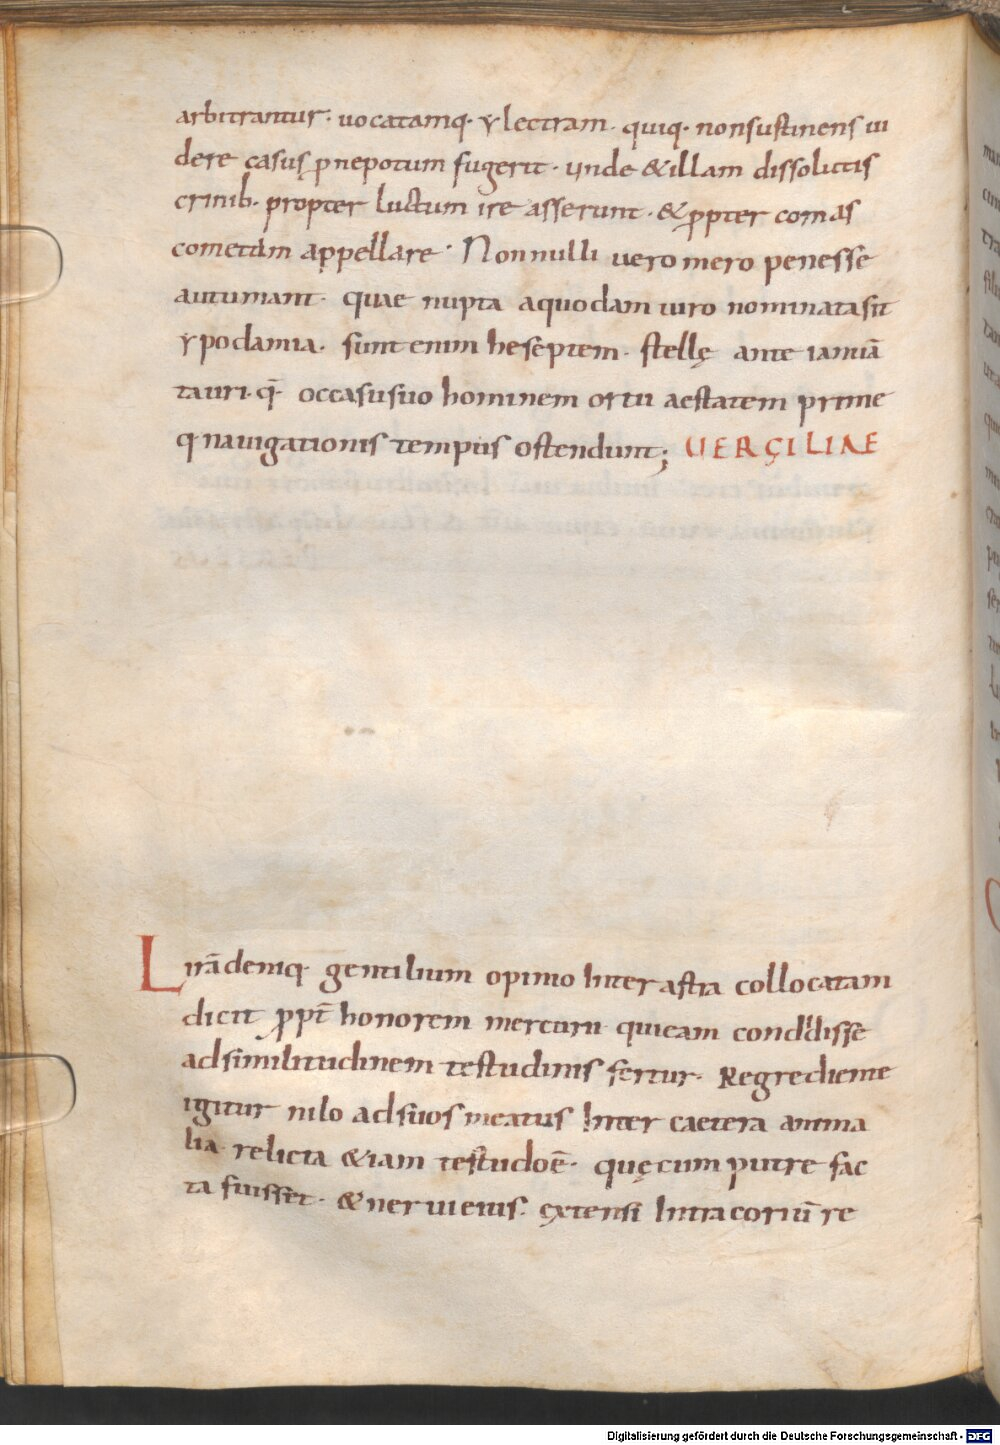 arbitrantur· uocatamq· ylectram· quiq· nonsustinens ui
dere casus pnepotum fugerit· unde &illam dissolutis
crinib· propter luctum ire asserunt· &ppter comas
cometam appellare· Nonnulli uero mero penesse
autumant· quae nupta aquodam uiro nominatasit
ypodamia· sunt enim heseptem· stellę ante ianuā
tauri· q̄· occasusuo hominem ortu aestatem prime
q nauigationis tempus ostendunt; UERGILIAE
Lirādemq· gentilium opinio Inter astra collocatam
dicit ppt̄ honorem mercurii quieam condidisse
adsimilitudinem testudinis fertur· Regrediente
igitur nilo adsuos meatus Inter caetera anima
lia relicta &iam testudoē· quęcum putre fac
ta fuisset· &nerui eius· extensi Intra coriū re
Digitalisierung gefördert durch die Deutsche Forschungsgemeinschaft - DFG